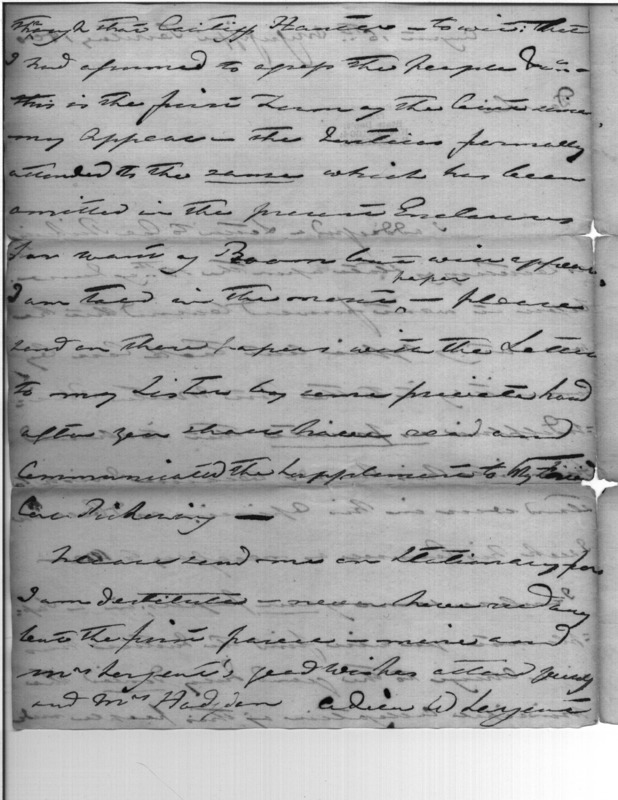 through that Caitiff Hunter — to wit: that
I had assumed to assess the People &c. —
this is the first Term of the Court since
my Appeal — the Justices formally
attended to the same which has been
omitted in the present Enclosures
for want of Room but will appear
I am told in the next paper, — please
send on these papers with the Letter
to my Sister by some private hand
after you shall have read and
Communicated the Supplement to My Friend
Colo Pickering —
Please send me on Stationary for
I am destitute — never have recd any
but the first parcel — mine and
Mrs Sargent's good wishes attend you
and Mrs Hodgdon adieu W Sargent